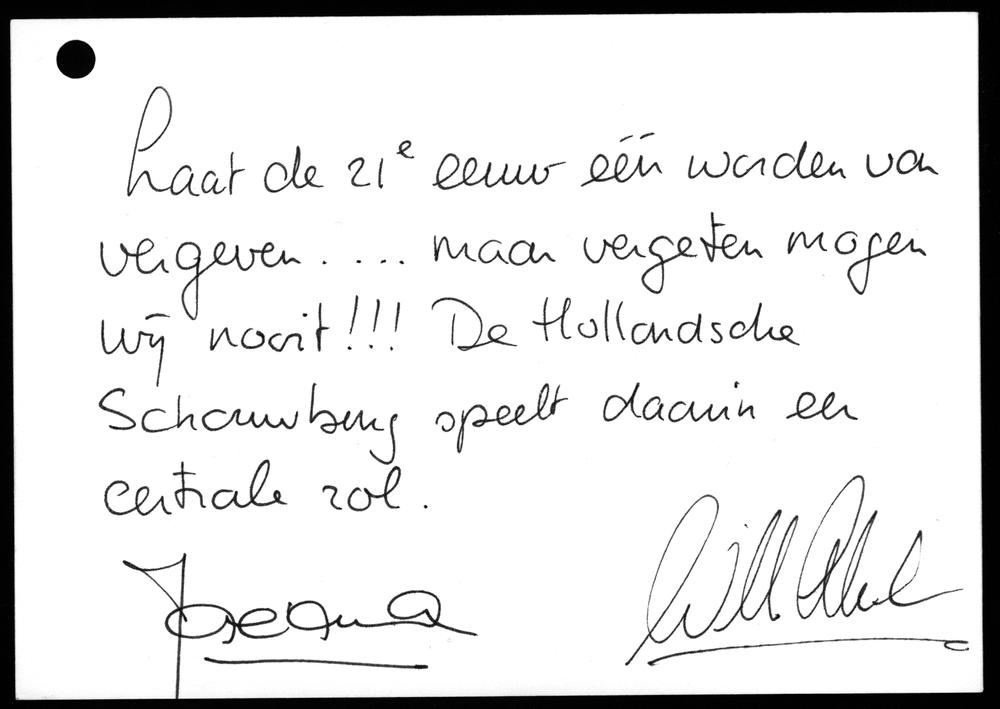 Laat de 21e eeuw één worden van
vergeven.... maar vergeten mogen
wij nooit!!! De Hollandsche
Schouwburg speelt daarin een
centrale rol.